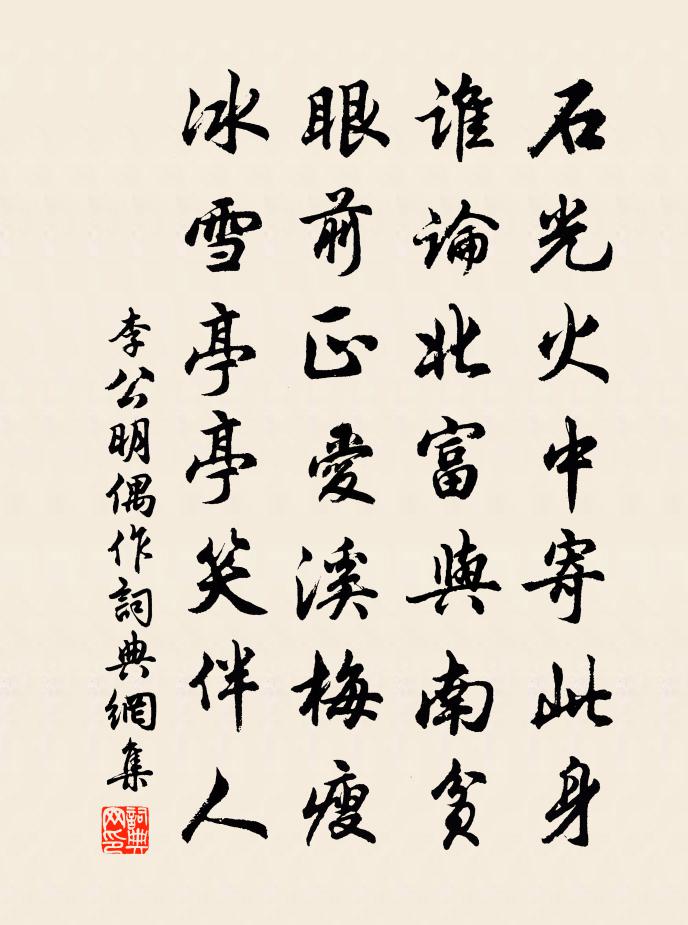 石光火中寄此身
誰論北富與南貧
眼前正愛溪梅瘦
冰雪亭亭笑伴人
李公明偶作詞典網集
詞典網印